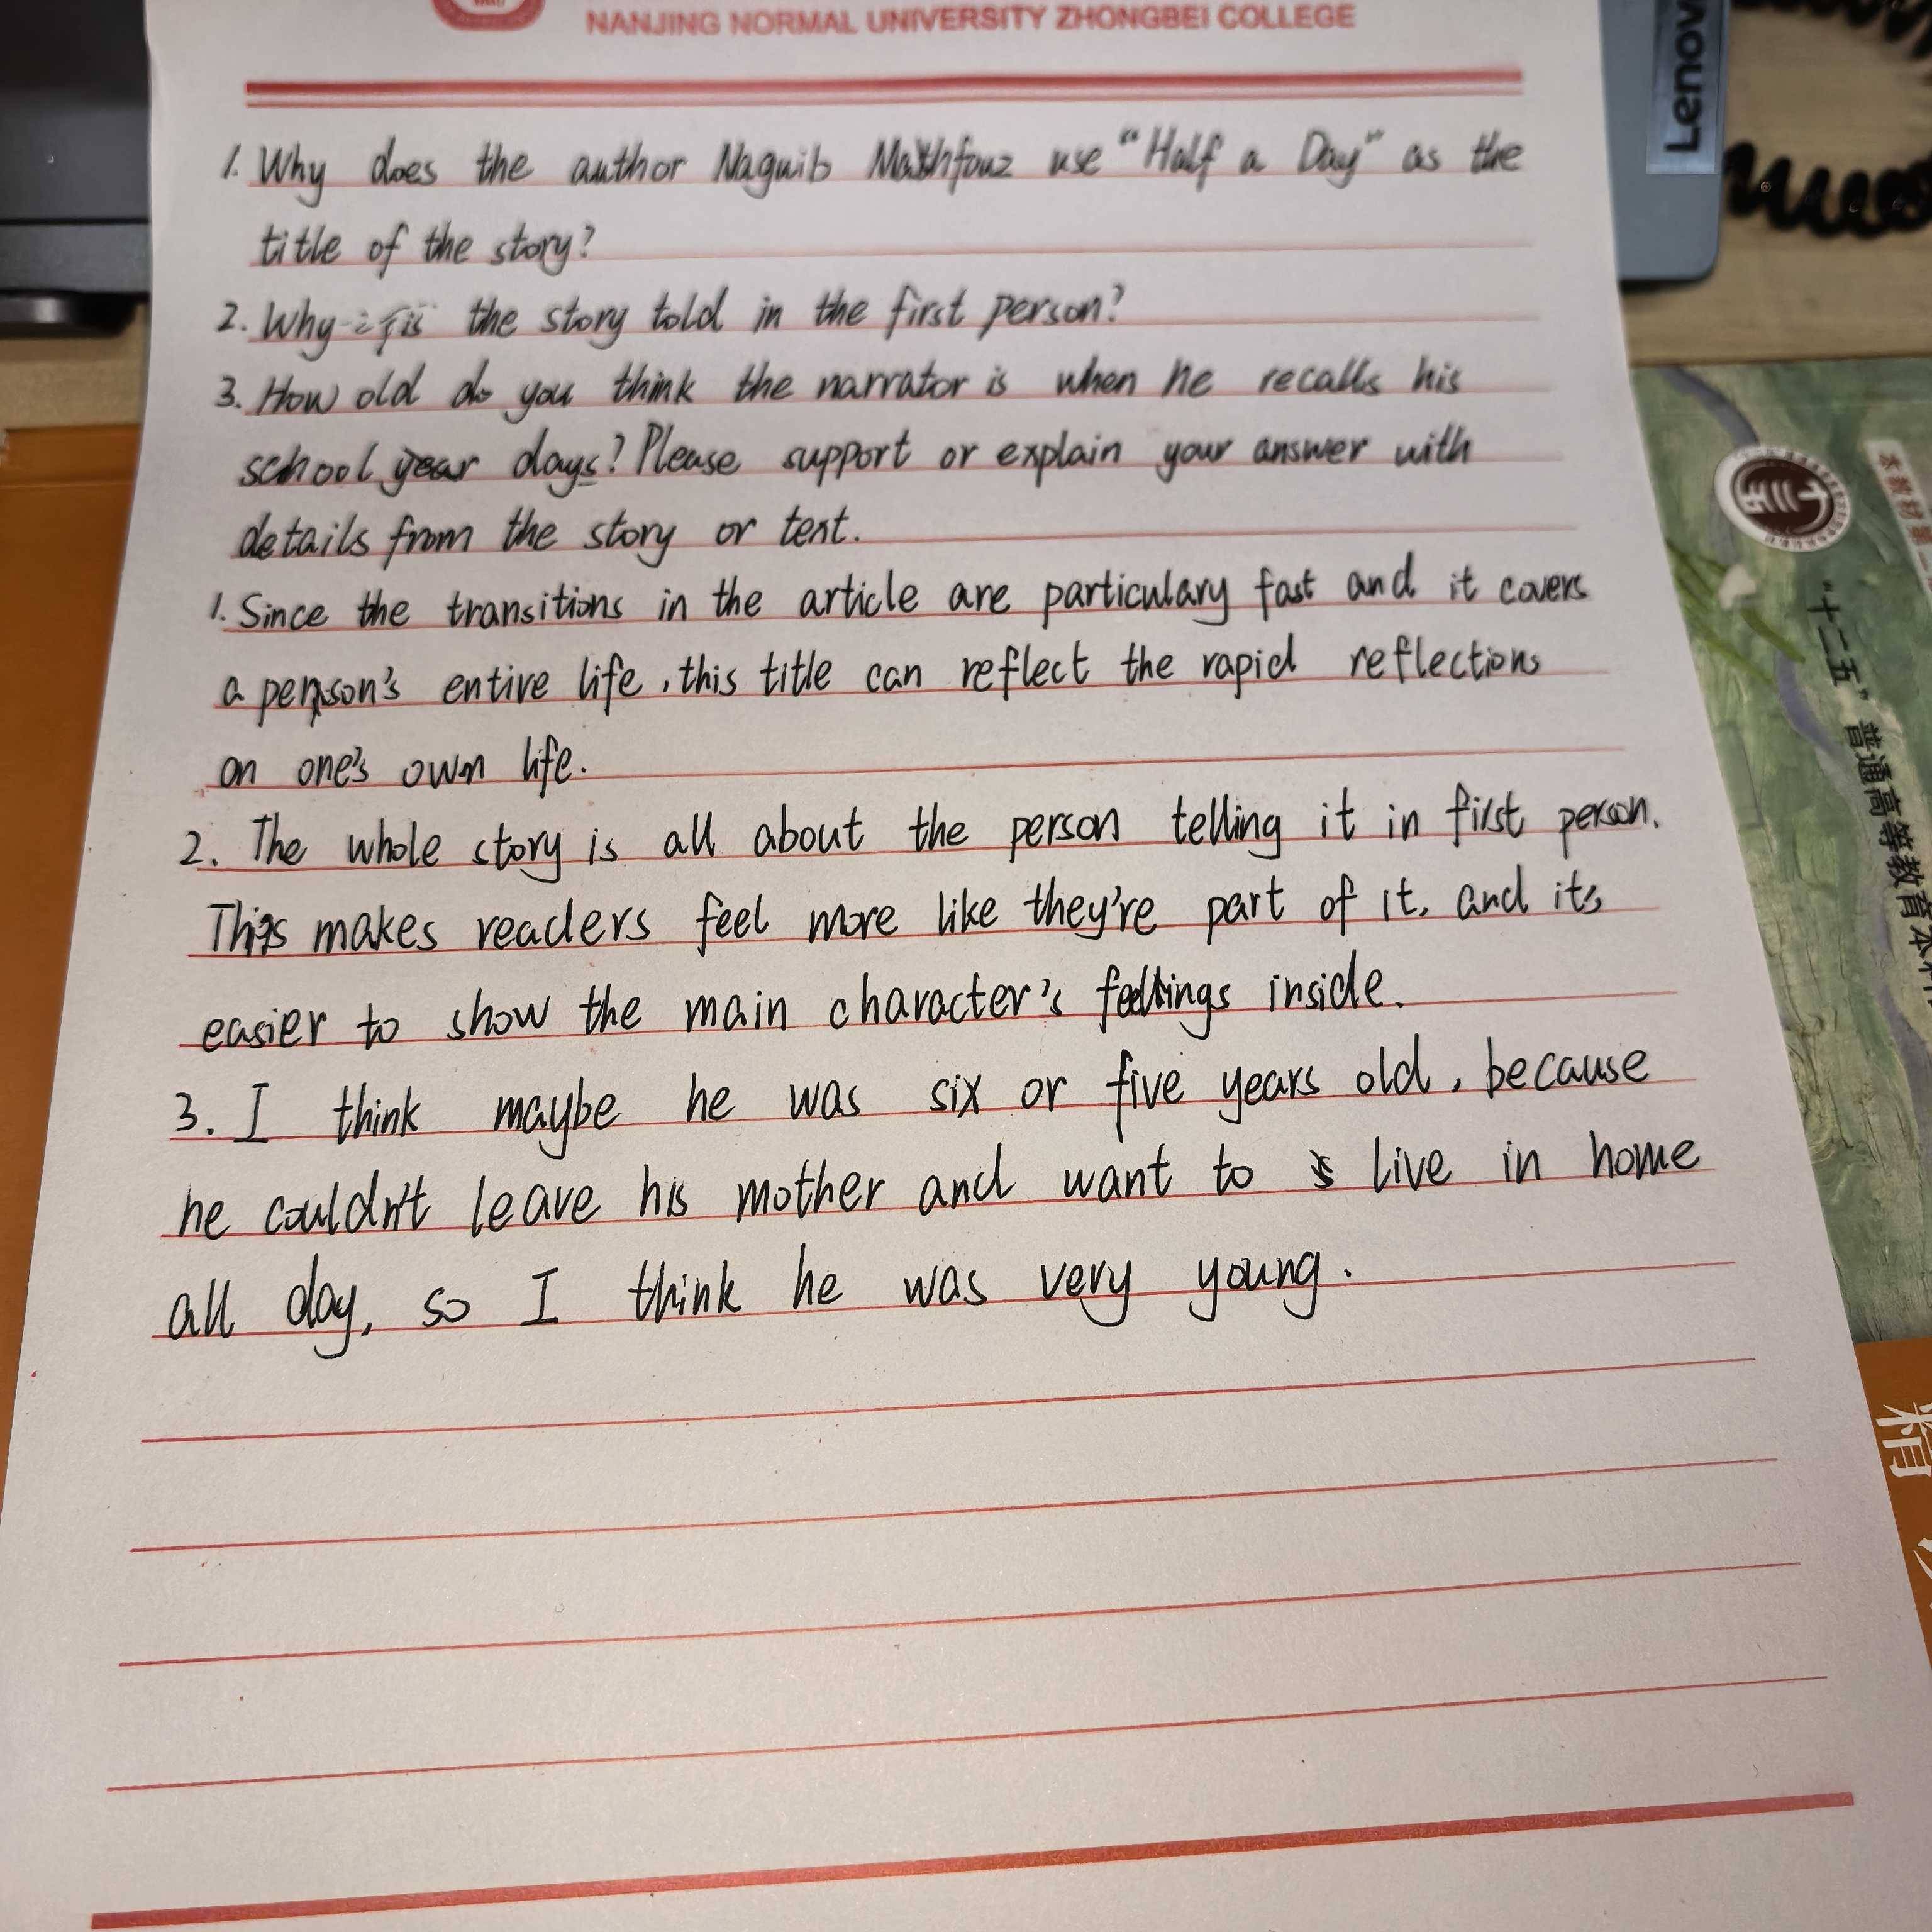 NANJING NORMAL UNIVERSITY ZHONGBEI COLLEGE
Lenov
1. Why does the author Naguib Mathfouz use "Half a Day" as the
title of the story?
2. Why is the story told in the first person?
3. How old do you think the narrator is when he recalls his
school year days? Please support or explain your answer with
details from the story or text.
1. Since the transitions in the article are particulary fast and it covers
a person's entire life, this title can reflect the rapid reflections
on one's own life.
2. The whole story is all about the person telling it in first person.
This makes readers feel more like they're part of it, and its
easier to show the main character's feelings inside.
3. I think maybe he was six or five years old, because
he couldn't leave his mother and want to live in home
all day, so I think he was very young.
"十二五"普通高等教育本
精